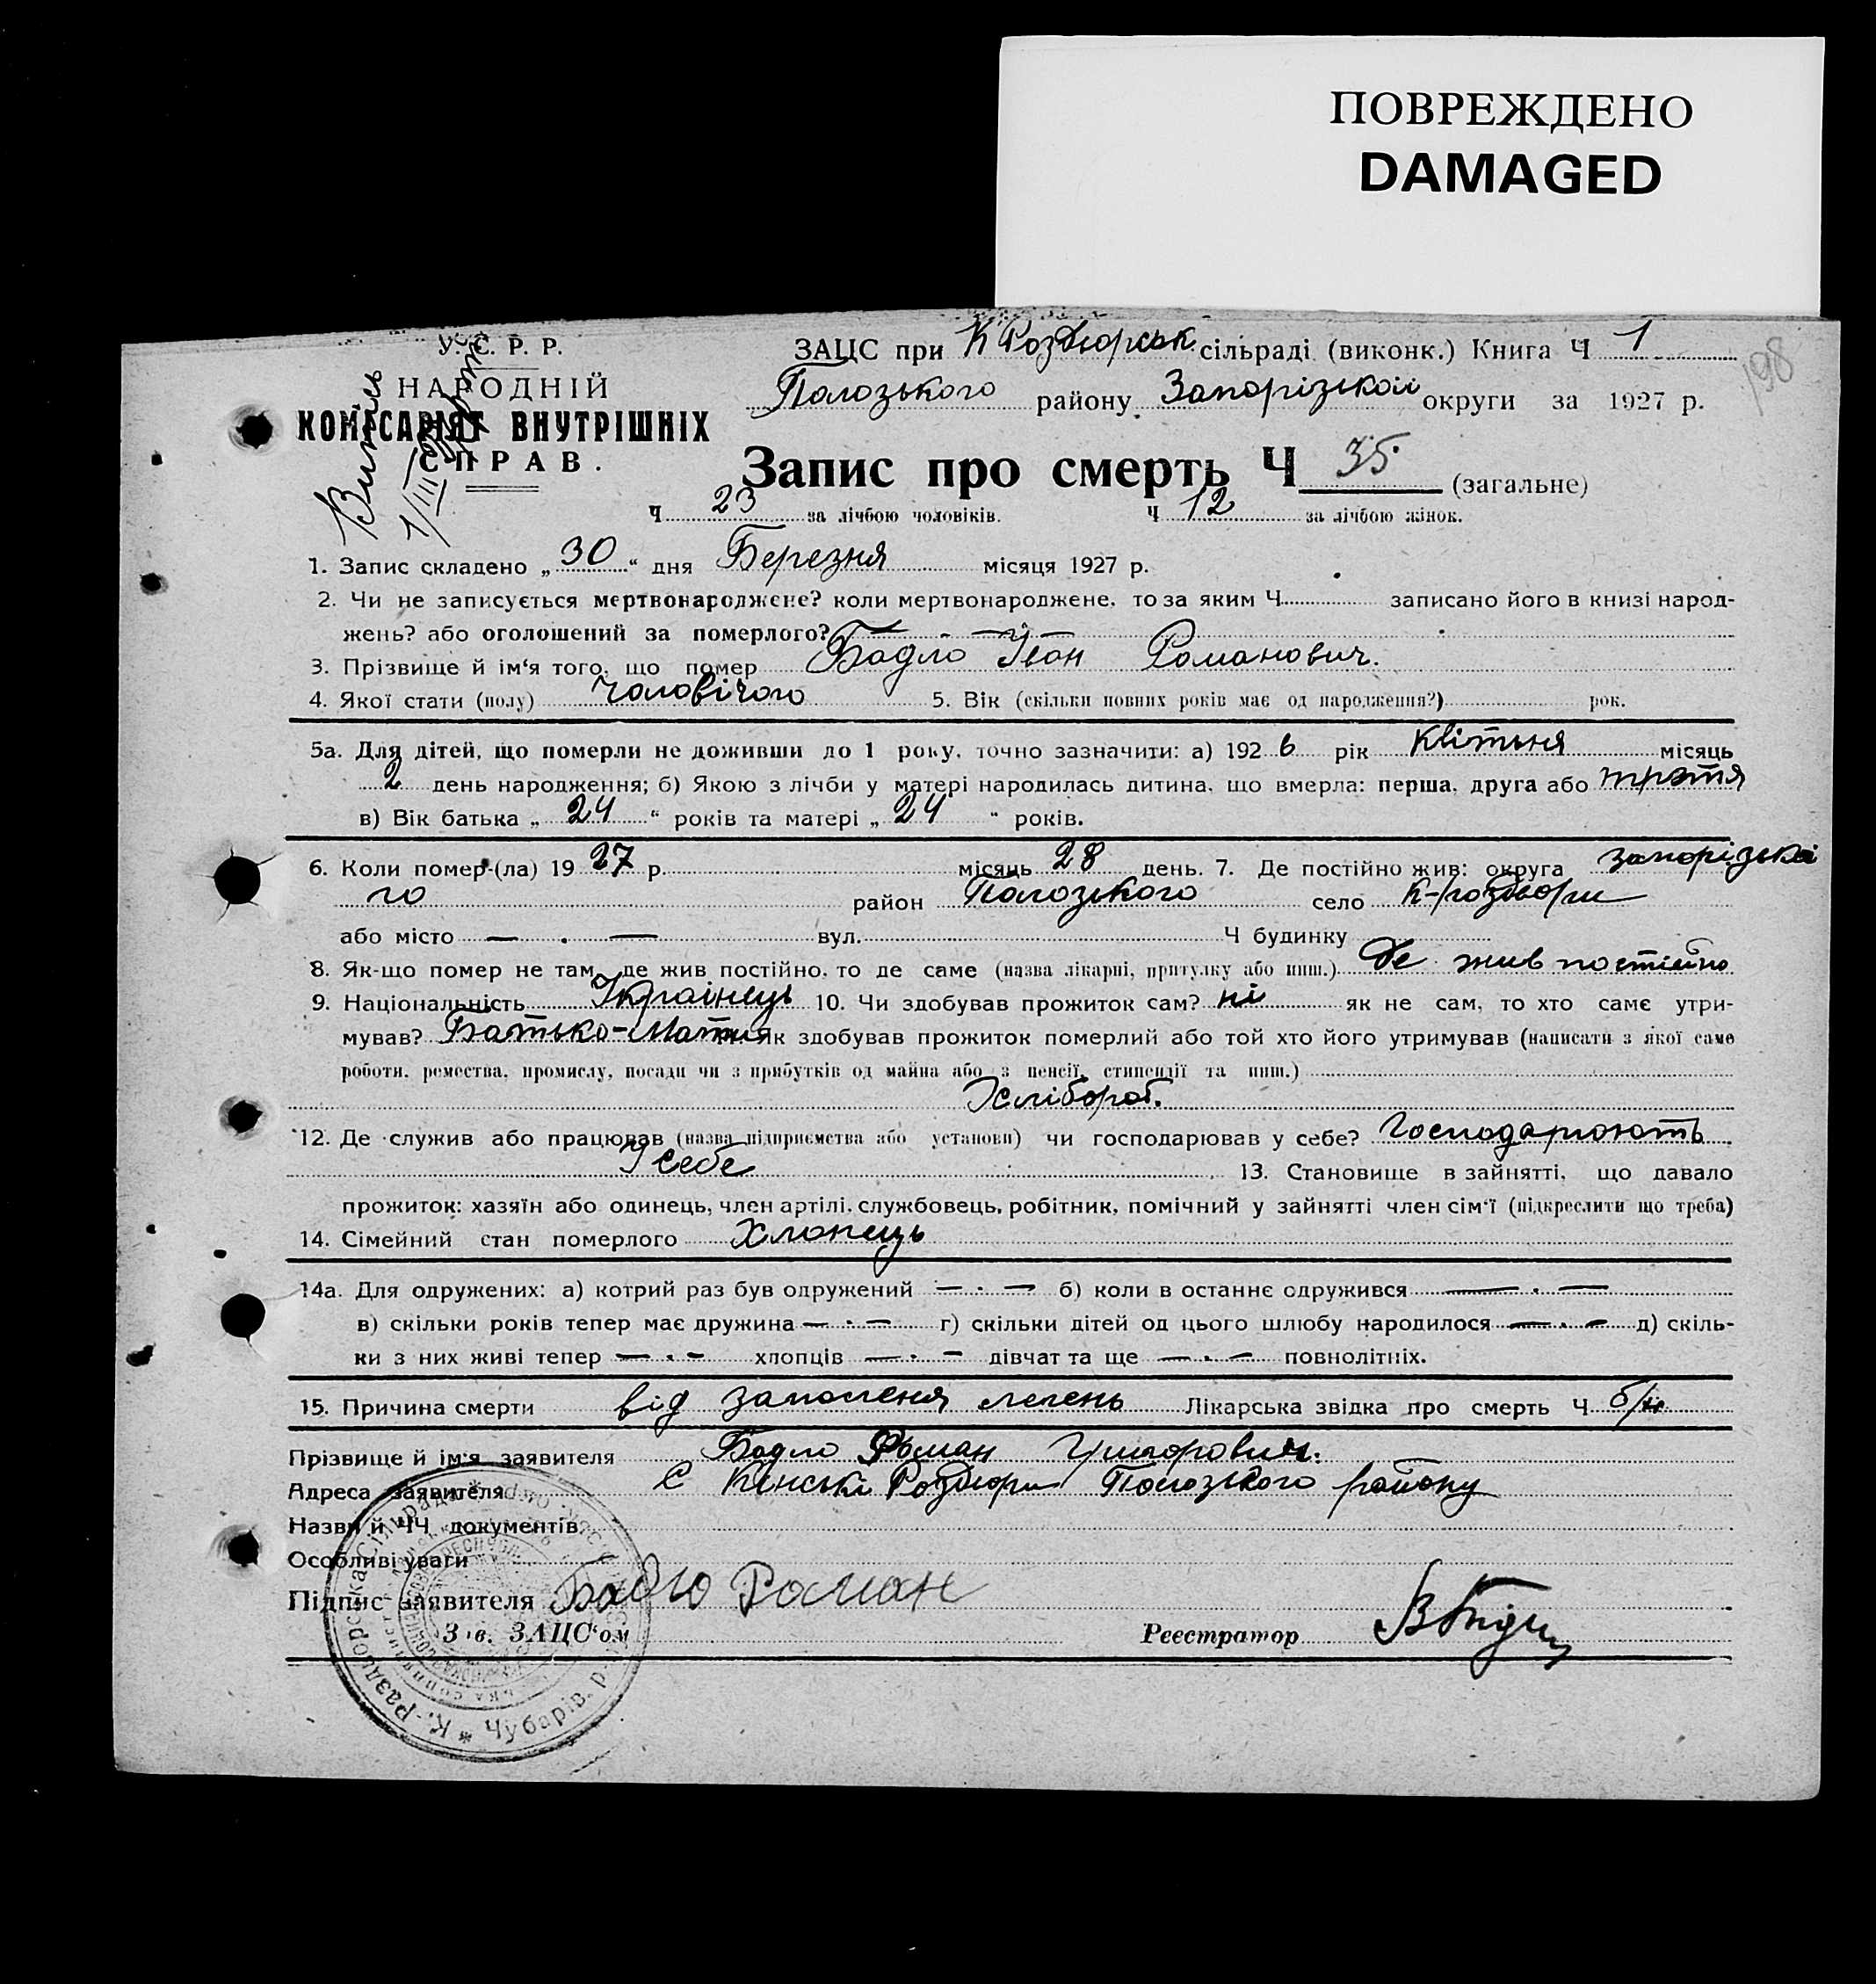 ПОВРЕЖДЕНО
DAMAGED
198
У. С. Р. Р.
НАРОДНІЙ
КОМІСАРІЯТ ВНУТРІШНІХ
СПРАВ.
ЗАЦС при К Роздорськ. сільраді (виконк.) Книга Ч 1
Пологзького району Запорізкой округи за 1927 р.
Запис про смерть Ч 35 (загальне)
Ч 23 за лічбою чоловіків. Ч 12 за лічбою жінок.
1. Запис складено „ 30 “ дня Березня місяця 1927 р.
2. Чи не записується мертвонароджене? коли мертвонароджене, то за яким Ч записано його в книзі народ-
жень? або оголошений за померлого?
3. Прізвище й ім‘я того, що помер Бадло Іван Романович.
4. Якої стати (полу) чоловічого 5. Вік (скільки повних років має од народження?) рок.
5а. Для дітей, що померли не доживши до 1 року, точно зазначити: а) 192 6 рік Квітьня місяць
2 день народження; б) Якою з лічби у матері народилась дитина, що вмерла: перша, друга або третя
в) Вік батька „ 24 “ років та матері „ 24 “ років.
6. Коли помер-(ла) 19 27 р. місяць 28 день. 7. Де постійно жив: округа запорізька
го район Пологзького село К-роздори
або місто — . — вул. Ч будинку
8. Як-що помер не там, де жив постійно, то де саме (назва лікарні, притулку або инш.) де жив постійно
9. Національність Украінець 10. Чи здобував прожиток сам? ні як не сам, то хто саме утри-
мував? Батько-Мати Як здобував прожиток померлий або той хто його утримував (написати з якої саме
роботи, ремества, промислу, посади чи з прибутків од майна або з пенсії, стипендії та инш.)
Хлібороб.
12. Де служив або працював (назва підприємства або установи) чи господарював у себе? Господарюють
У себе 13. Становище в зайнятті, що давало
прожиток: хазяїн або одинець, член артілі, службовець, робітник, помічний у зайнятті член сім‘ї (підкреслити що треба)
14. Сімейний стан померлого Хлопець
14а. Для одружених: а) котрий раз був одружений — . — б) коли в останнє одружився — . —
в) скільки років тепер має дружина — . — г) скільки дітей од цього шлюбу народилося — . — д) скіль-
ки з них живі тепер — . — хлопців — . — дівчат та ще — . — повнолітніх.
15. Причина смерти від заполеня легень Лікарська звідка про смерть Ч б/н
Прізвище й ім‘я заявителя Бадло Роман
Адреса заявителя С Кінські Роздори Пологзкого району
Назви й ЧЧ документів
Особливі уваги
Підпис заявителя Бадло Роман
Зав. ЗАЦС‘ом Реєстратор
К.-Раздорська Сільрада * Чубарів. р-